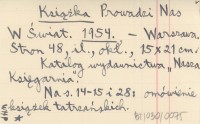 Książka Prowadzi Nas
W Świat. 1954. - Warszawa.
Stron 48, il., okł., 15 x 21 cm.
Katalog wydawnictwa „Nasza
Księgarnia".
Na s. 14-15 i 28: omówienie
książek tatrzańskich.